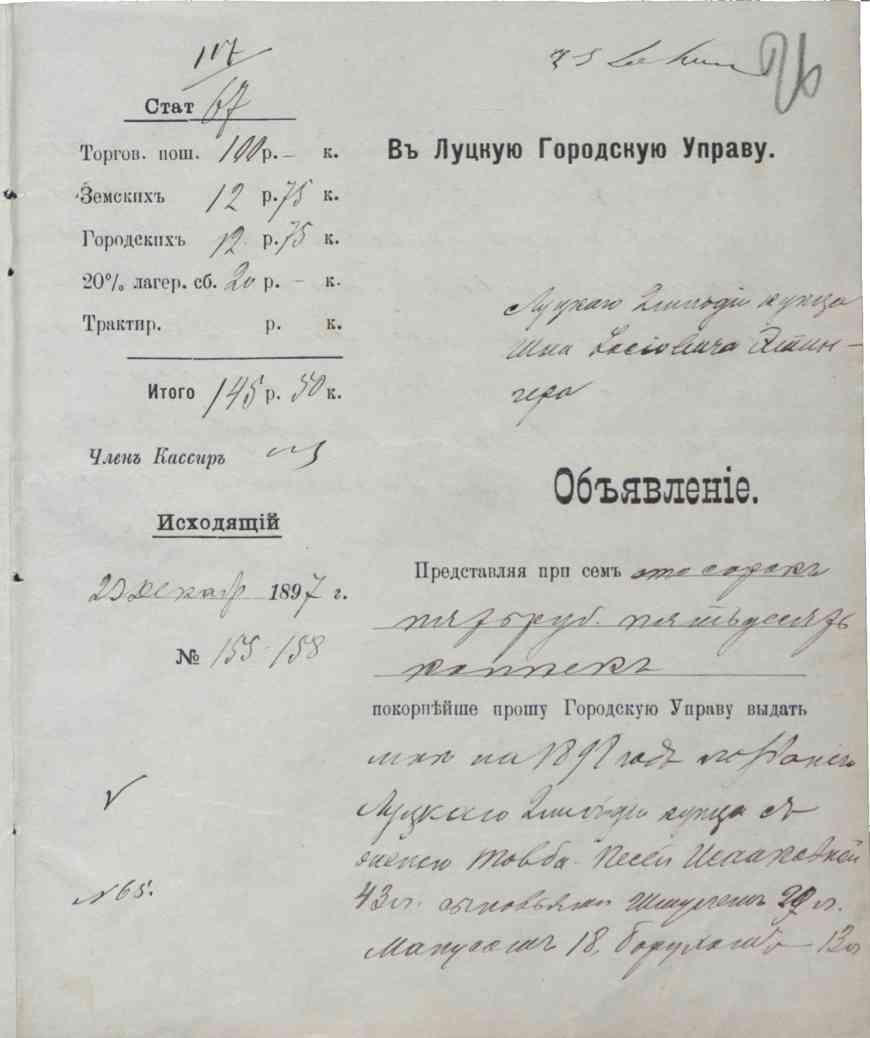 117
Стат 67
Торгов. пош. 100 р. – к.
Земскихъ 12 р. 75 к.
Городскихъ 12 р. 75 к.
20% лагер. сб. 20 р. – к.
Трактир. р. к.
Итого 145 р. 50 к.
Членъ Кассиръ
Исходящій
23 Декабр 1897 г.
№ 155-158
№ 65.
26
Въ Луцкую Городскую Управу.
Луцкаго 2 гильдіи купца
Іосіовича Этин-
гера
Объявленіе.
Представляя при семъ сто сорокъ
пять руб. пятьдесятъ
копѣекъ
покорнѣйше прошу Городскую Управу выдать
мнѣ на 1898 годъ
Луцкаго 2 гильдіи купца съ
женою Товба-Песей Исааковной
43 л. сыновьями Шмулемъ 29 л.
18, Борухомъ 13 л